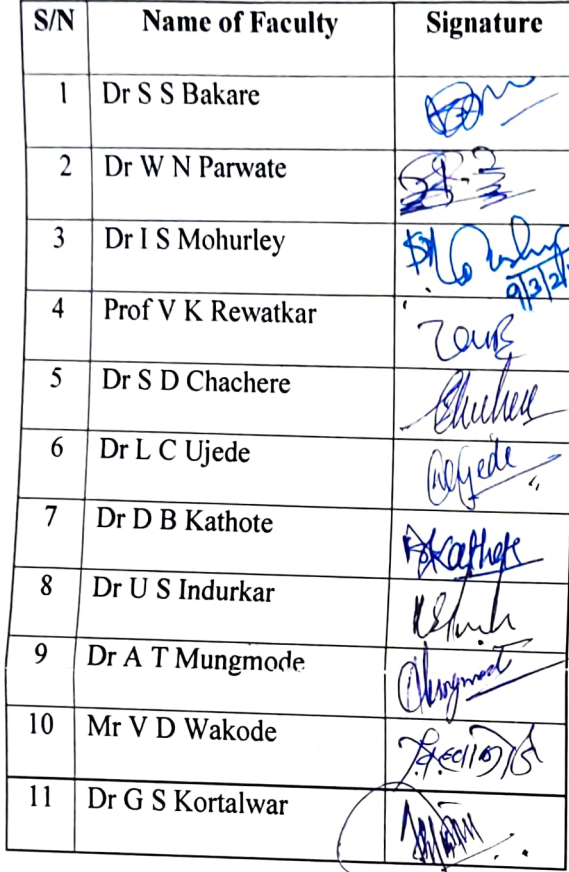 S/N Name of Faculty Signature
1 Dr S S Bakare
2 Dr W N Parwate
3 Dr I S Mohurley
9/3/2
4 Prof V K Rewatkar
5 Dr S D Chachere
6 Dr L C Ujede
7 Dr D B Kathote DKathote
8 Dr U S Indurkar
9 Dr A T Mungmode
10 Mr V D Wakode
11 Dr G S Kortalwar